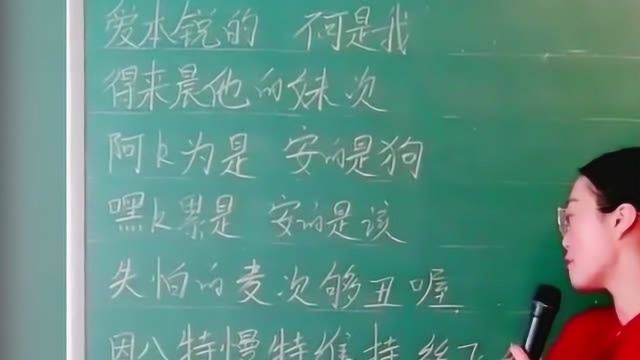 爱本锐的 何是我
得来晨他的妹次
阿k为是 安的是狗
嘿k累是 安的是该
失怕的麦次够丑喔
因八特慢特维持